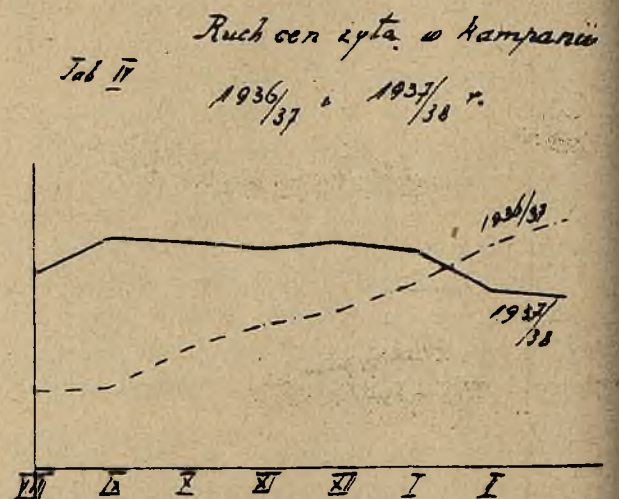 Ruch cen żyta w kampanii
Tab IV
1936/37 i 1937/38 r.
1936/37
1937/38
VIII IX X XI XII I II